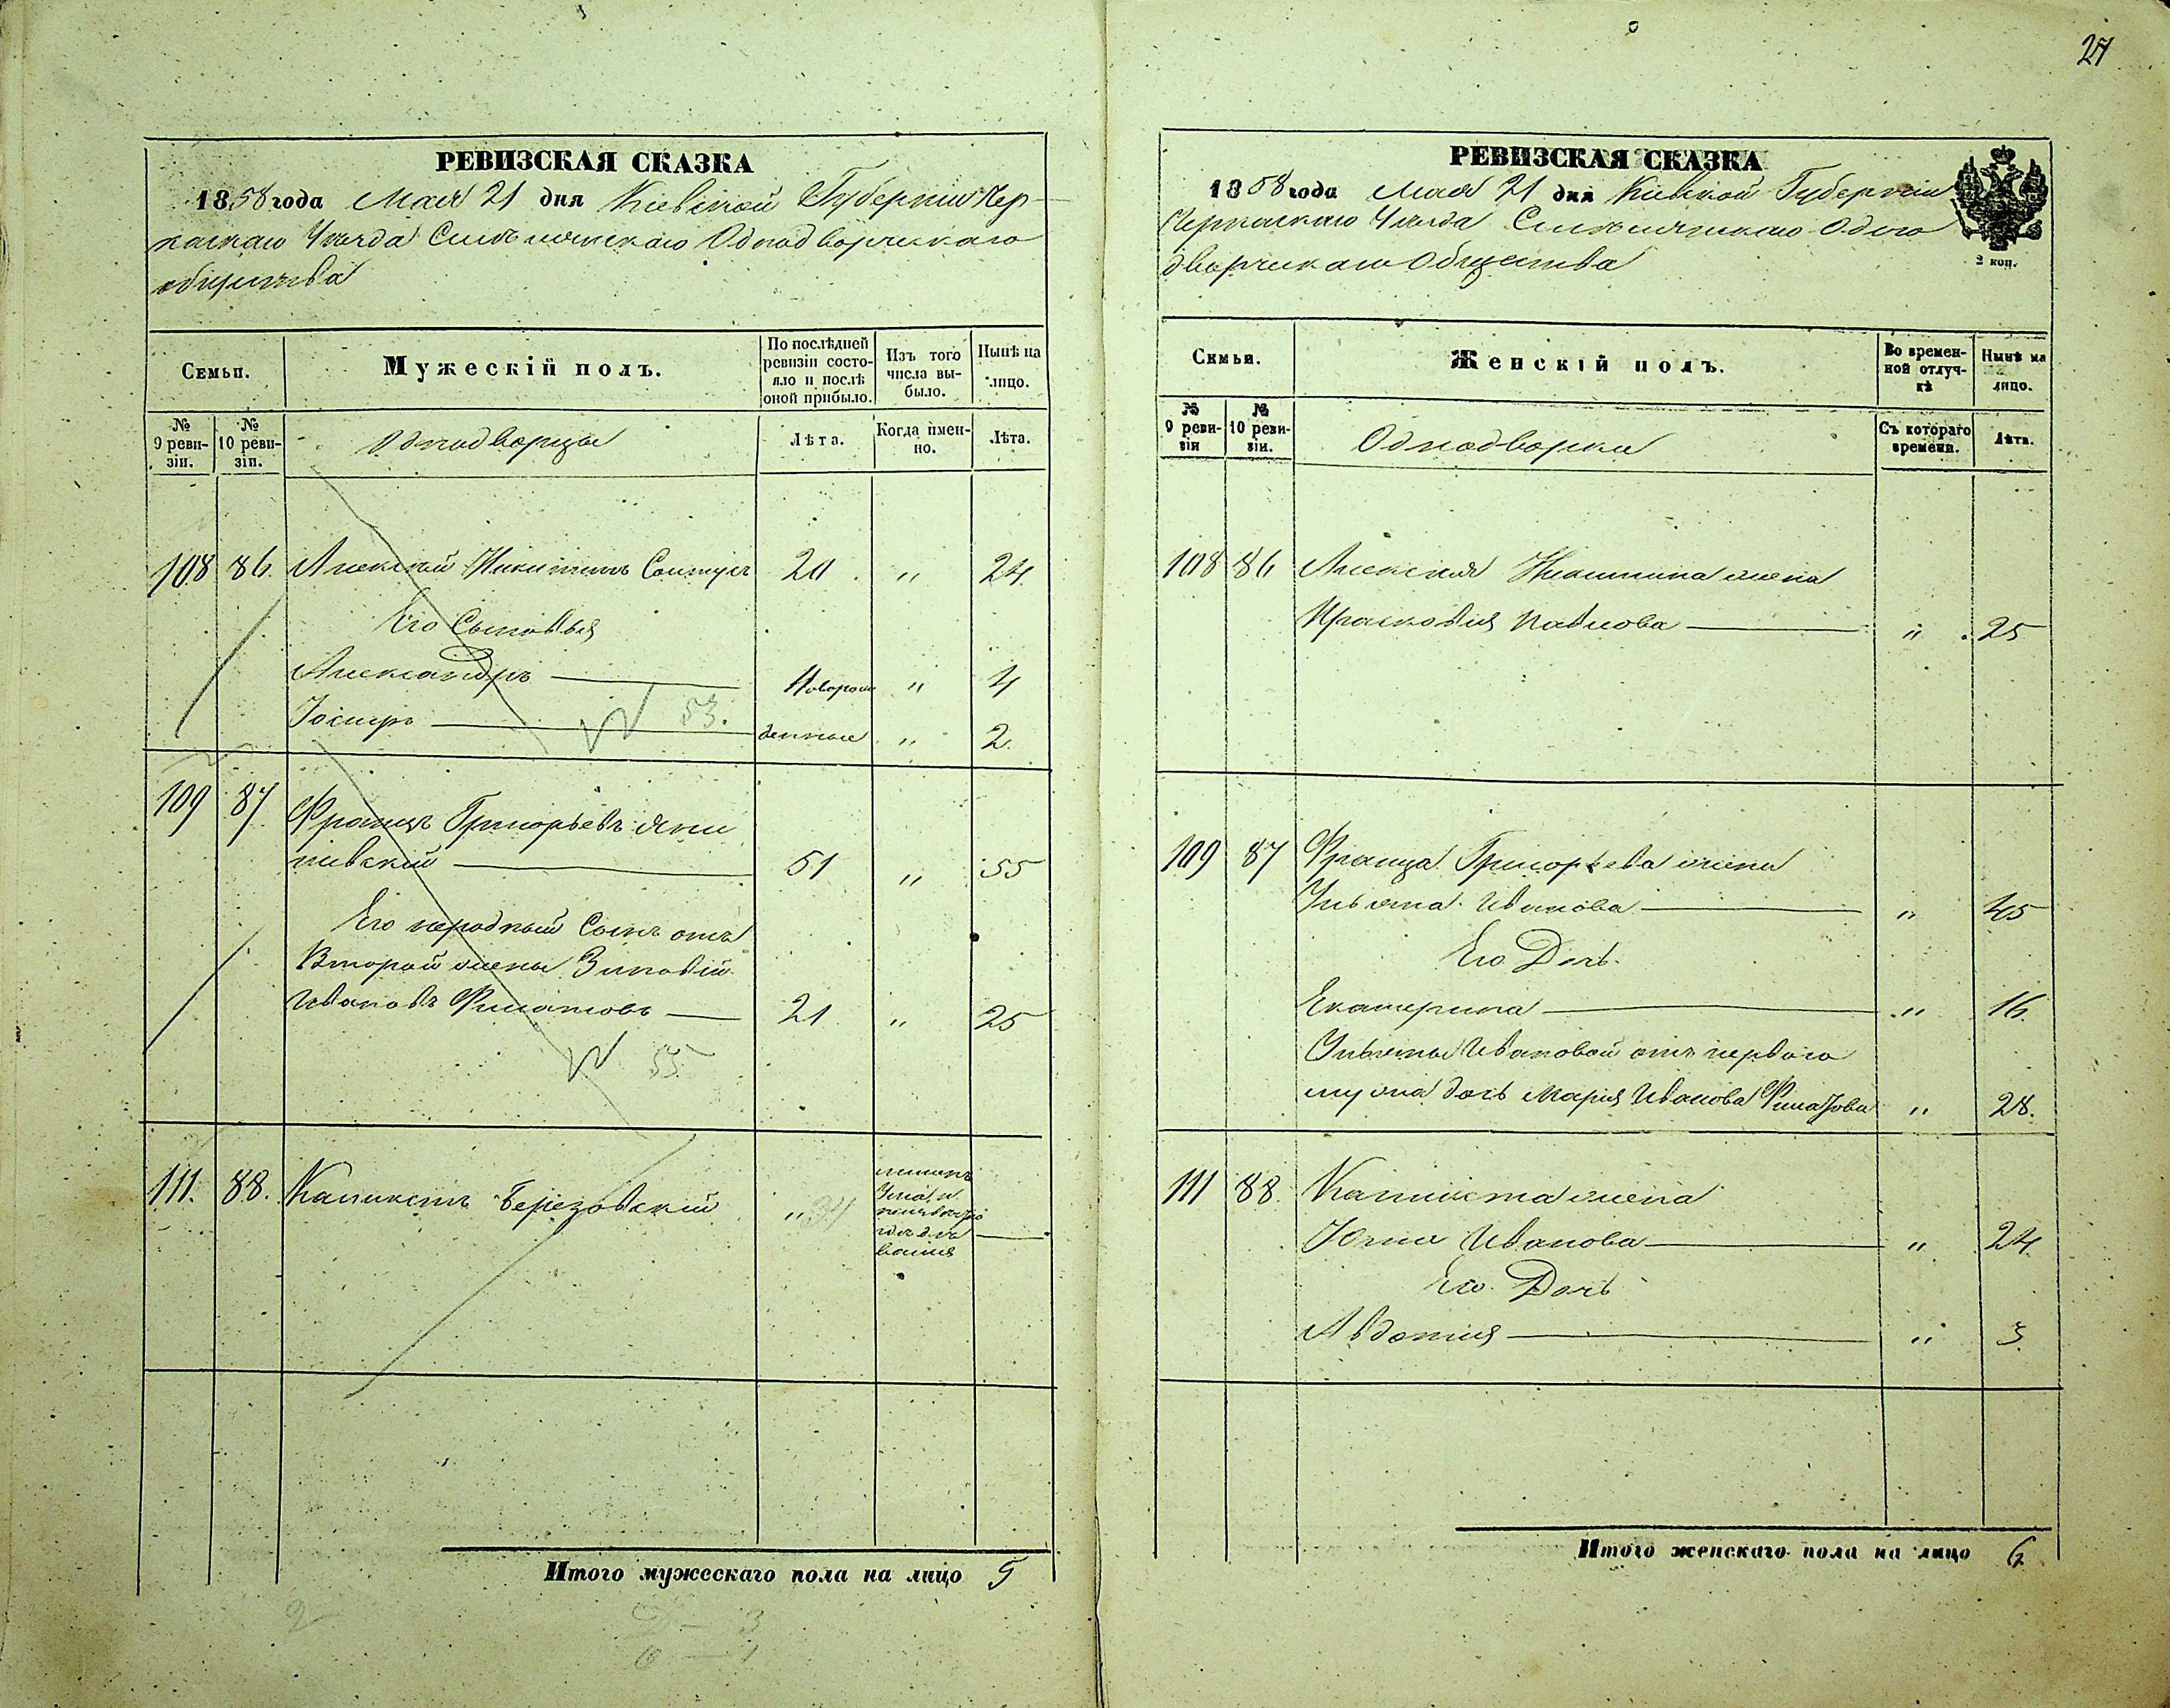 27
РЕВИЗСКАЯ СКАЗКА
1858 года Мая 21 дня Кіевской Губерніи Чер-
каскаго Уѣзда Однодворческаго
общества
Семьи.
Мужескій полъ.
По послѣдней ревизіи состо-
яло и послѣ оной прибыло.
Изъ того числа вы-
было.
Нынѣ на лицо.
№ 9 реви-
зіи.
№ 10 реви-
зіи.
Однодворцы
Лѣта.
Когда имен-
но.
Лѣта.
108 86. Алексѣй Никитинъ 20 " 24.
Его Сыновья
Александръ Новорож " 4
Іосифъ денные " 2.
53.
109 87 Францъ Григорьевъ Яни
шевскій 51 " 55
Его неродный Сынъ отъ
Второй жены Зиновій
Ивановъ Филатовъ 21 " 25
55
111. 88. Каликстъ Березовскій " 34
Итого мужескаго пола на лицо 5
2
3
РЕВИЗСКАЯ СКАЗКА
1858 года Мая 21 дня Кіевской Губерніи
Черкаскаго Уѣзда Одно
дворческаго Общества
2 коп.
Семьи.
Женскій полъ.
Во времен-
ной отлуч-
кѣ
Нынѣ на лицо.
№ 9 реви-
зіи
№ 10 реви-
зіи.
Однодворки
Съ котораго времени.
Лѣта.
108 86 Алексѣя Никитина жена
Прасковія Павлова " 25
109 87 Франца Григорьева жена
Ульяна Иванова " 45
Его Дочь
Екатерина " 16.
Ульяны Ивановой отъ перваго
мужа дочь Марія Иванова Филатова " 28.
111 88. Каликста жена
Иванова " 24.
Его Дочь
Авдотия " 3
Итого женскаго пола на лицо 6